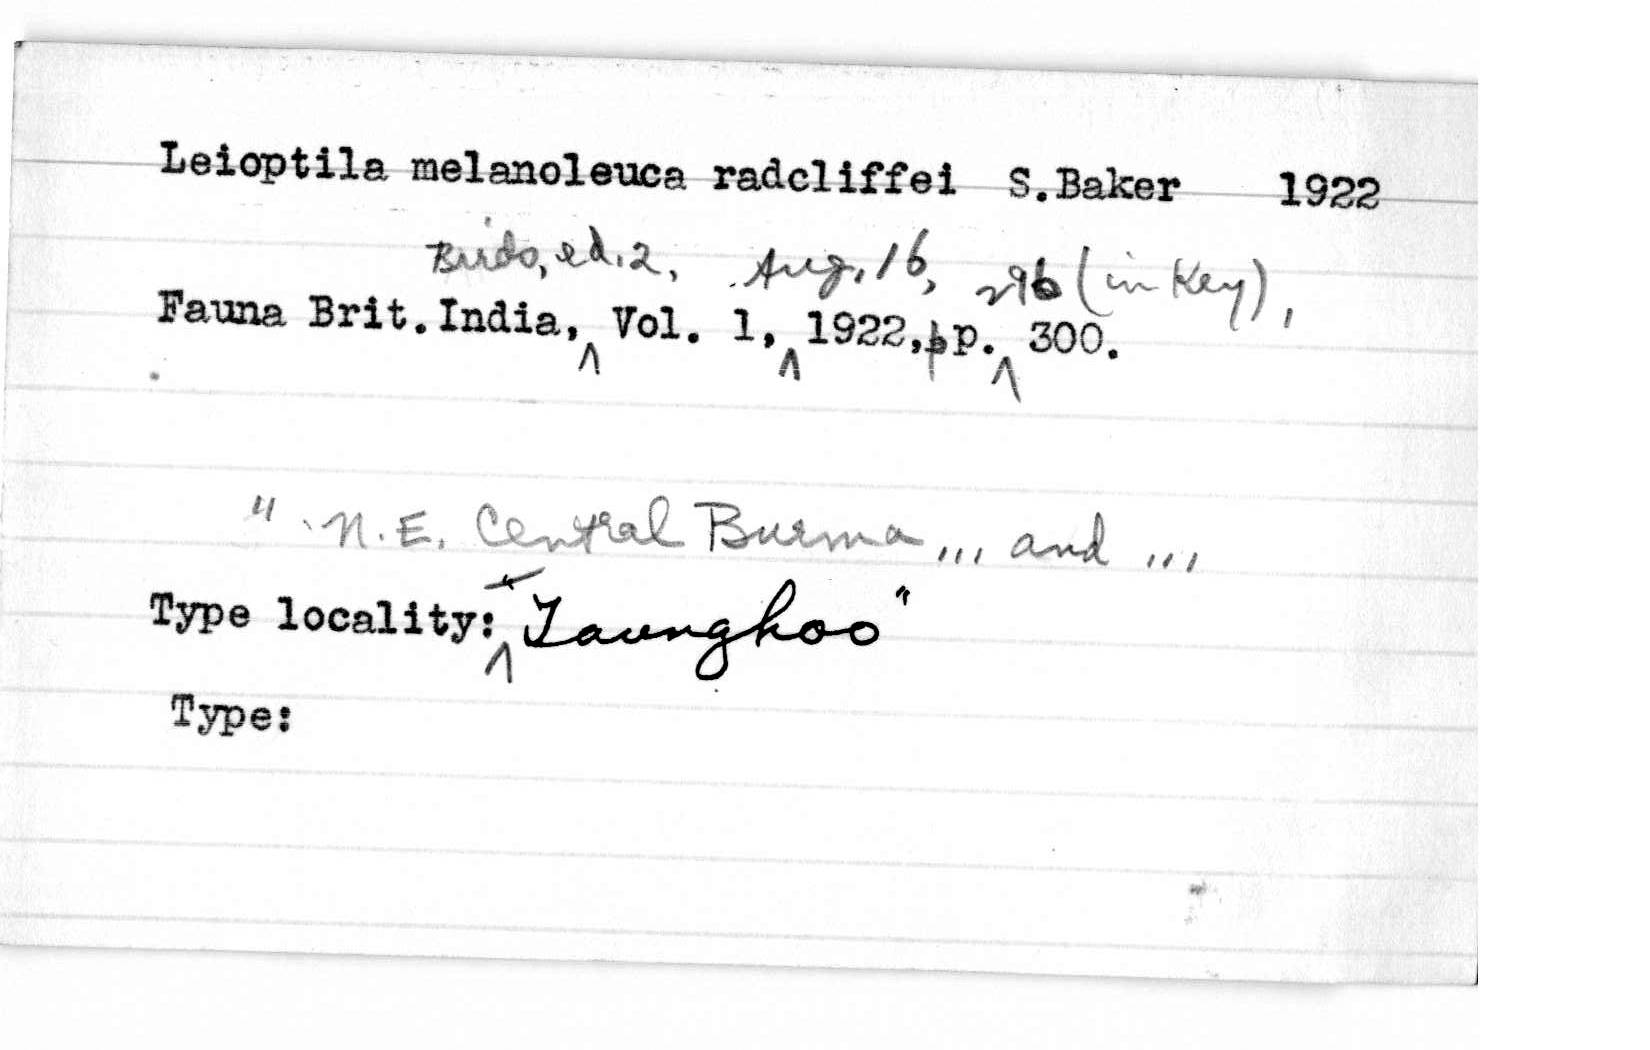 Leioptila melanoleuca radcliffei S.Baker 1922
Birds, ed. 2, Aug. 16, 296 (in Key),
Fauna Brit. India, Vol. 1, 1922, pp. 300.
" N.E. Central Burma ,,, and ,,,
Type locality: Taunghoo"
Type: